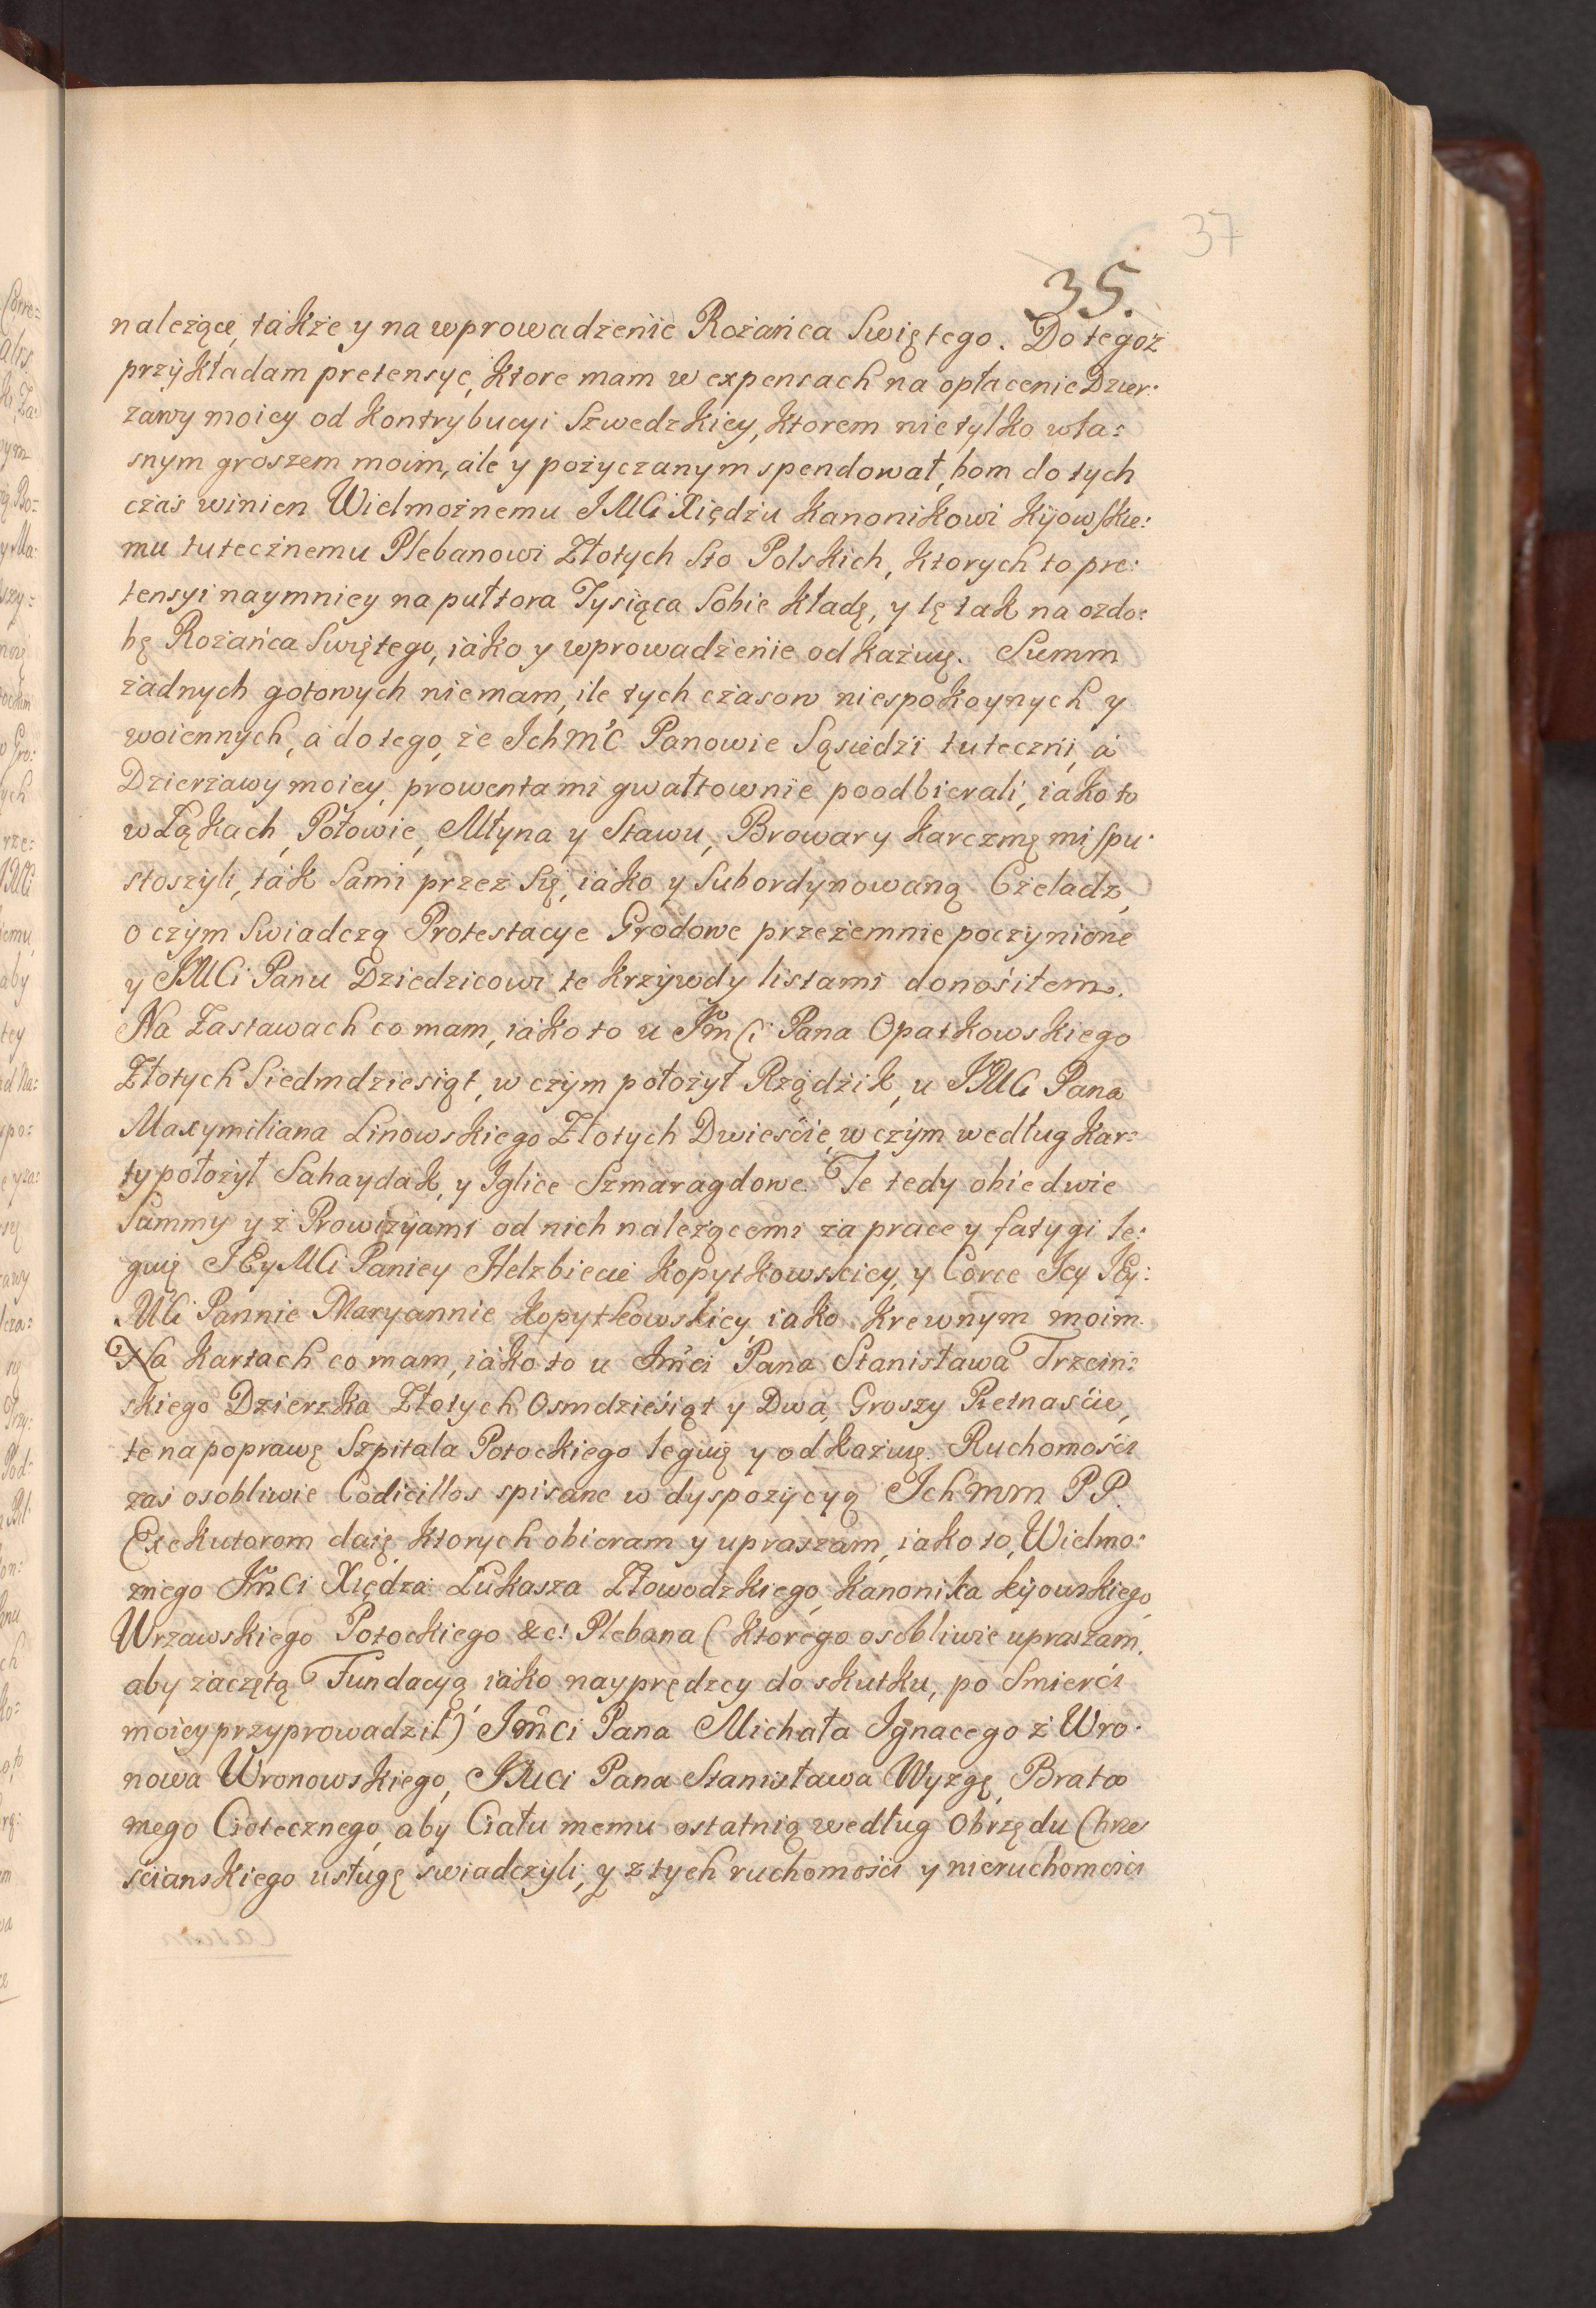 37
35.
należące, także y na wprowadzenie Rożańca Swiętego. Do tegoż
przykładam pretensye, ktore mam w expensach na opłacenie Dzier:
żawy moiey od Kontrybucyi Szwedzkiey, ktorem nie tylko wła:
snym groszem moim, ale y pożyczanym spendował, bom do tych
czas winien Wielmożnemu JMCi Xiędzu Kanonikowi Kijowskie:
mu tutecznemu Plebanowi Złotych Sto Polskich, ktorych to pre:
tensyi naymniey na puł tora Tysiąca Sobie kładę, y tę tak na ozdo:
bę Rożańca Swiętego, iako y wprowadzenie odkażuię. Summ
żadnych gotowych niemam, ile tych czasow niespokoynych y
woiennych, a do tego, że Ichmć Panowie Sąsiedzi tuteczni, a
Dzierżawy moiey, prowentami gwałtownie poodbierali, iako to
w Łąkach, Połowie, Młyna y Stawu, Browar y Karczmę mi spu:
stoszyli, tak Sami przez Się, iako y Subordynowaną Czeladz,
o czym Swiadczą Protestacye Grodowe przezemnie poczynione
y JMCi Panu Dziedzicowi te krzywdy listami donosiłem.
Na Zastawach co mam, iako to u JmCi Pana Opatkowskiego
Złotych Siedmdziesiąt, w czym położył Rządzik, u JMCi Pana
Maxymiliana Linowskiego Złotych Dwieście, w czym według Kar:
ty położył Sahaydak, y Iglice Szmaragdowe. Te tedy obiedwie
Summy y z Prowizyami od nich należącemi za prace y fatygi le:
guię JEyMCi Paniey Helzbiecie Kopytkowskiey, y Corce Jey JEy:
MCi Pannie Maryannie Kopytkowskiey, iako krewnym moim.
Na Kartach co mam, iako to u Jmci Pana Stanisława Trzciń:
skiego Dzierzka Złotych Osmdziesiąt y Dwa, Groszy Pietnaście,
te na poprawę Szpitala Potockiego leguię y odkażuię. Ruchomości
zaś osobliwie Codicillos spisane w dyspozycyą Ichmm PP.
Exekutorom daię, ktorych obieram y upraszam, iako to, Wielmo:
żnego JmCi Xiędza Łukasza Złowodzkiego, Kanonika Kijowskiego,
Wrzawskiego Potockiego &c: Plebana (ktorego osobliwie upraszam,
aby zaczętą Fundacyą iako nayprędzey do skutku, po Smierci
moiey przyprowadził) Jmci Pana Michała Ignacego z Wro:
nowa Wronowskiego, JMci Pana Stanisława Wyzgę, Brata
mego Ciotecznego, aby Ciału memu ostatnią według Obrzędu Chrze
ścianskiego usługę świadczyli, y z tych ruchomości y nieruchomości